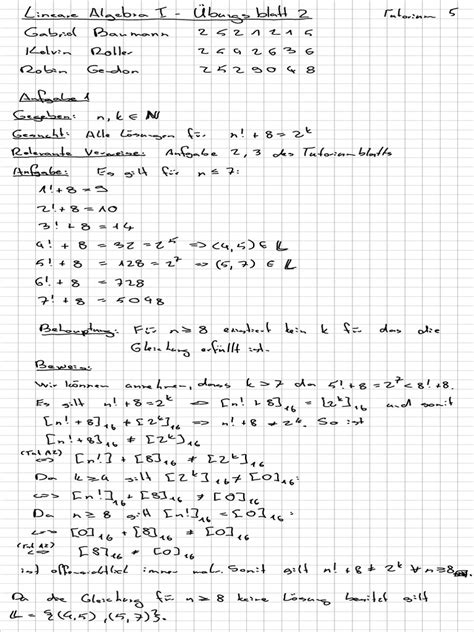 Lineare Algebra I - Übungsblatt 2 Tutorium 5
Gabriel Baumann 2521215
Kelvin Roller 2592636
Robin Gendon 2529048
Aufgabe 1
Gegeben: n, k ∈ N
Gesucht: Alle Lösungen für n! + 8 = 2^k
Relevante Verweise: Aufgabe 2, 3 des Tutoriumblatts
Aufgabe: Es gilt für n ≤ 7:
1! + 8 = 9
2! + 8 = 10
3! + 8 = 14
4! + 8 = 32 = 2^5 => (4,5) ∈ L
5! + 8 = 128 = 2^7 => (5,7) ∈ L
6! + 8 = 728
7! + 8 = 5048
Behauptung: Für n ≥ 8 existiert kein k für das die
Gleichung erfüllt ist.
Beweis:
Wir können annehmen, dass k > 7 da 5! + 8 = 2^7 < 8! + 8.
Es gilt n! + 8 = 2^k <=> [n! + 8]_16 = [2^k]_16 und somit
[n! + 8]_16 ≠ [2^k]_16 => n! + 8 ≠ 2^k. So ist
[n! + 8]_16 ≠ [2^k]_16
(Tut A2) <=> [n!]_16 + [8]_16 ≠ [2^k]_16
Da k ≥ 4 gilt [2^k]_16 ≠ [0]_16
<=> [n!]_16 + [8]_16 ≠ [0]_16
Da n ≥ 8 gilt [n!]_16 = [0]_16
<=> [0]_16 + [8]_16 ≠ [0]_16
(Tut A2) <=> [8]_16 ≠ [0]_16
ist offensichtlich immer wahr. Somit gilt n! + 8 ≠ 2^k ∀ n ≥ 8
Da die Gleichung für n ≥ 8 keine Lösung besitzt gilt
L = {(4,5), (5,7)}.